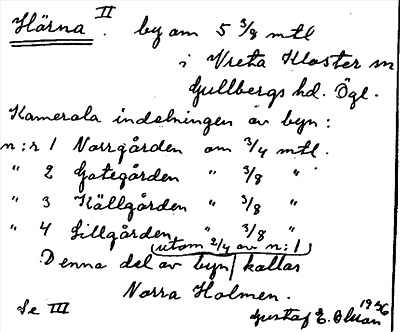 Härna II. by om 5 3/8 mtl
i Vreta Kloster sn
Gullbergs hd. Ögl.
Kamerala indelningen av byn:
n:r 1 Norrgården om 3/4 mtl.
" 2 Gategården " 3/8 "
" 3 Källgården " 3/8 "
" 4 Lillgården " 3/8 "
(utom 2/4 av n:1)
Denna del av byn kallas
Norra Holmen.
Se III
Gustaf E. Olsson 1936